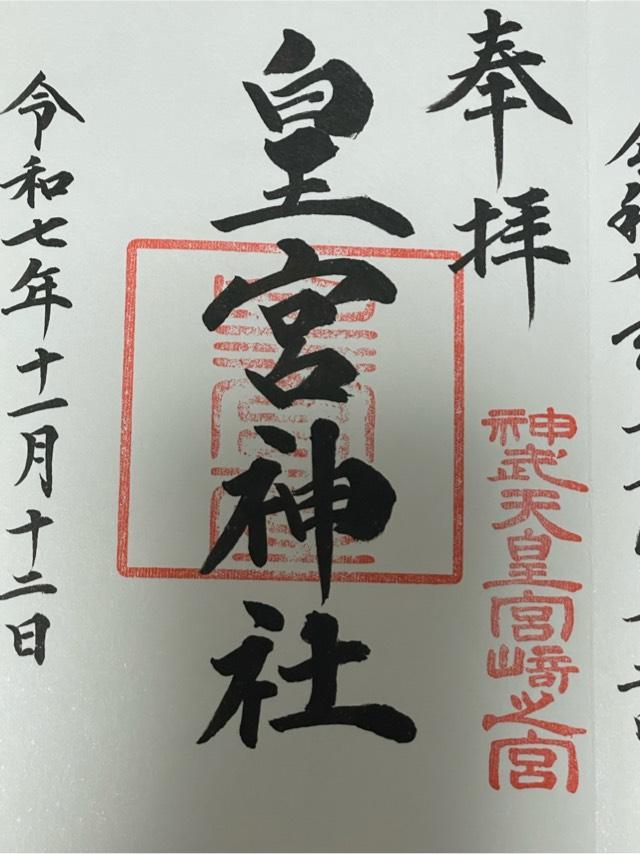 奉拝
神武天皇宮崎之宮
皇宮神社
令和七年十一月十二日